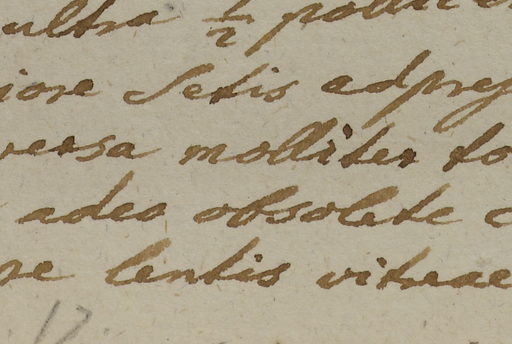 ultra 1/2 polli
iore Setis adpres
versa molliter to
adeo obsolete c
re lentis vitreae
17